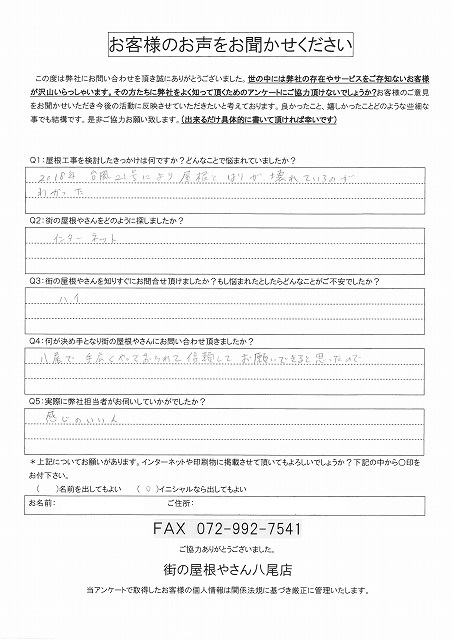 お客様のお声をお聞かせください
この度は弊社にお問い合わせを頂き誠にありがとうございました。世の中には弊社の存在やサービスをご存知ないお客様
が沢山いらっしゃいます。その方たちに弊社をよく知って頂くためのアンケートにご協力頂けないでしょうか?お客様のご意見
をお聞かせいただき今後の活動に反映させていただきたいと考えております。良かったこと、嬉しかったことどのような些細な
事でも結構です。是非ご協力お願い致します。(出来るだけ具体的に書いて頂ければ幸いです)
Q1:屋根工事を検討したきっかけは何ですか?どんなことで悩まれていましたか?
2018年 台風21号により屋根とはりが壊れているのが
わかった
Q2:街の屋根やさんをどのように探しましたか?
インターネット
Q3:街の屋根やさんを知りすぐにお問合せ頂けましたか?もし悩まれたとしたらどんなことがご不安でしたか?
ハイ
Q4:何が決め手となり街の屋根やさんにお問い合わせ頂きましたか?
八尾で手広くやっておられて信頼してお願いできると思ったので
Q5:実際に弊社担当者がお伺いしていかがでしたか?
感じのいい人
*上記についてお願いがあります。インターネットや印刷物に掲載させて頂いてもよろしいでしょうか?下記の中から〇印を
お付け下さい。
( )名前を出してもよい (○)イニシャルなら出してもよい
お名前: ご住所:
FAX 072-992-7541
ご協力ありがとうございました。
街の屋根やさん八尾店
当アンケートで取得したお客様の個人情報は関係法規に基づき厳正に管理いたします。